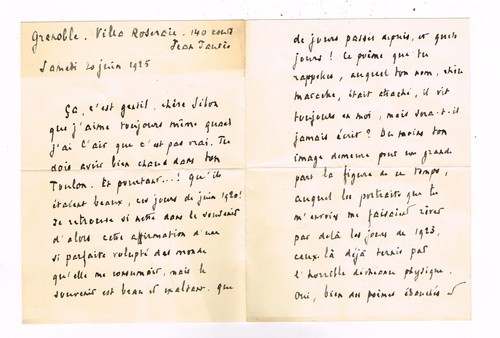 Grenoble. Villa Roseraie. 140 cours
Jean Jaurès
Samedi 20 juin 1925
Ça, c'est gentil, chère
que j'aime toujours même quand
j'ai l'air que c'est pas vrai. Tu
dois avoir bien chaud dans ton
Toulon. Et pourtant...! Qu'ils
étaient beaux, ces jours de juin 1920!
Je retrouve si nette dans le souvenir
d'alors cette affirmation d'une
si parfaite volupté des monde
qu'elle me consumait, mais le
souvenir est beau et exaltant. Que
de jours passés depuis, et quels
jours! Le poème que tu
rappelles, auquel ton nom, chère
était attaché, il vit
toujours en moi, mais sera-t-il
jamais écrit? Du moins ton
image demeure pour une grande
part la figure de ce temps,
auquel les portraits que tu
m'envoies me faisaient rêver
par delà les jours de 1923,
ceux-là déjà ternis par
l'horrible déchéance physique.
Oui, bien des poèmes ébauchés et